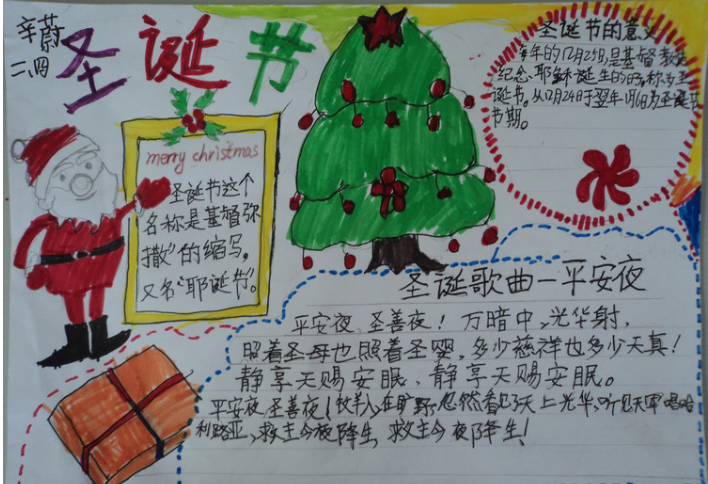 辛蔚
二、四
圣诞节
merry christmas
圣诞节这个
名称是基督弥
撒"的缩写。
又名"耶诞节"。
圣诞节的意义
每年的12月25日,是基督教徒
纪念耶稣诞生的日子,称为圣
诞节。从12月24日于翌年1月6日为圣诞节
节期。
圣诞歌曲—平安夜
平安夜、圣善夜!万暗中,光华射,
照着圣母也照着圣婴,多少慈祥也多少天真!
静享天赐安眠、静享天赐安眠。
平安夜,圣善夜!牧羊人,在旷野,忽然看见了天上光华,听见天军唱哈
利路亚,救主今夜降生,救主今夜降生!